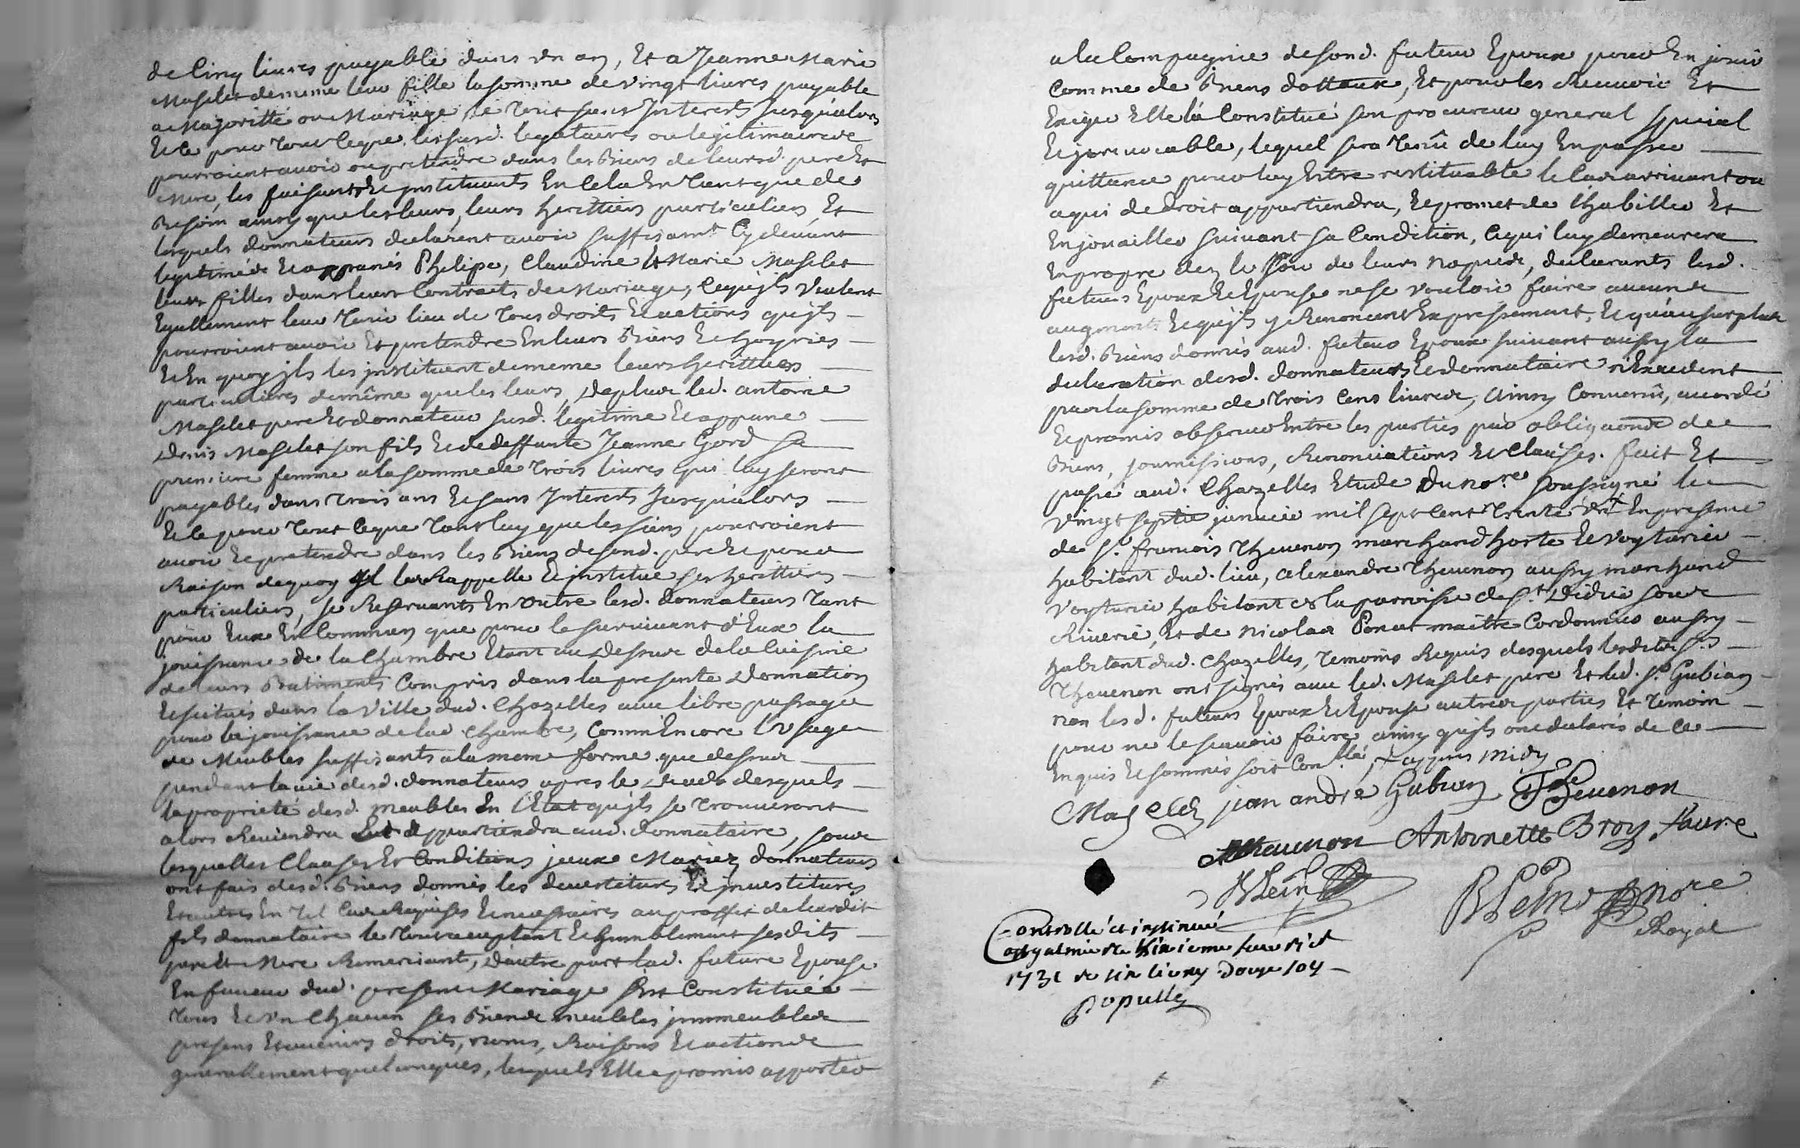 de Cinq livres payable dans un an, Et a Jeanne Marie
Masclet dememe leur fille la somme de vingt livres payable
a Majoritté ou Mariage le tout sans Interests Jusqu'alors
Et ce pour tout ce que lesusd. legataires ou legitimaires
pourroient avoir ou pretendre dans les Biens de leursd. pere Et
Mere, les faisants Et instituants En Cela En tant que de
Besoin ainsy que les leurs, leurs herittiers particuliers, Et
lesquels donnateurs declarent avoir suffisamt. Cy devant
legitimés Et appanés Philipe, Claudine Et Marie Masclet
leurs filles dans leurs Contracts de Mariage, Ce qu'jls veulent
Egallement leur tenir lieu de tous droits Et actions qu'jls
pourroient avoir Et pretendre En leurs Biens Et hoyries
Et En quoy jls les jnstituent de meme leurs herittieres
particulieres de même que les leurs, deplus led. antoine
Masclet pere Et donnateur susd. legitime Et appane
Denis Masclet son fils Et de deffunte Jeanne Gord sa
premiere femme a la somme de trois livres qui luy seront
payables dans trois ans Et sans Interests Jusqu'alors
Et ce pour tout ce que tant luy que les siens pourroient
avoir Et pretendre dans les Biens de sond. pere Et pour
Raison de quoy jl les Rappelle Et institue ses herittiers
particuliers, se Reservants En outre lesd. Donnateurs tant
pour Eux En Commun que pour le survivant d'Eux la
jouissance de la Chambre Etant au Dessus de la Cuisine
de leurs Batiments Compris dans la presente Donnation
Et scitués dans la ville dud. Chazelles avec libre passage
pour la jouissance de lad. Chambre, Comm'Encore l'usage
de Meubles suffisants a la meme forme que dessus
pendant la vie desd. donnateurs apres le deceds desquels
la proprieté desd. meubles En l'Etat qu'jls se trouveront
alors Reviendra Et appartiendra aud. donnataire, sous
lesquelles Clauses Et Conditions jceux Mariez donnateurs
ont fais desd. Biens donnés les devestitures Et jnvestitures
Et autres En tel Cas Requises Et necessaires au proffit de leurdit
fils donnataire le tout acceptant Et humblement sesdits
pere Et Mere Remerciant, D'autre part lad. future Epouse
En faveur dud. present Mariage s'est Constituée
tous Et un Chacun ses Biens meubles jmmeubles
presens Et avenirs droits, noms, Raisons Et actions
generallement quelconques, lesquels Elle a promis apporter
a la Compagnie de sond. futur Epoux pour En jouir
Comme de Biens dottaux, Et pour les Recevoir Et
Exiger Elle l'a Constitué son procureur general special
Et jrrevocable, lequel sera tenû de luy En passer
quittance pour luy Estre restituable le Cas arrivant ou
a qui de droit appartiendra, Et promet de l'habiller Et
Enjoualler suivant sa Condition, Ce qui luy demeurera
En propre dez le soir de leurs nopces, declarants lesd.
futurs Epoux Et Epouse ne se vouloir faire aucune
augment. Et qu'jls y Renoncent Expressement, Et qu'au surplus
lesd. Biens donnés aud. futur Epoux suivant aussy la
declaration desd. donnateurs Et donnataire n'Excedent
pas la somme de trois Cens livres, Ainsy Convenû, accordé
Et promis observer Entre les parties par obliguaon de
Biens, soumissions, Renonciations Et Clauses. fait Et
passé aud. Chazelles Etude Du nore. soussigné le
vingt septe janvier mil sept Cent trente Un X En presence
de Sr. francois Thevenon marchand horte Et voyturier
habitant dud. lieu, Alexandre Thevenon aussy marchand
voyturier habitant de la parroisse de St. Didier sous
Riverie, Et de Nicolas Poncet maitre Cordonnier aussy
habitant dud. Chazelles, temoins Requis desquels lesdits Srs
Thevenon ont signés avec led. Masclet pere Et led. Sr. Gubian
non lesd. futurs Epoux Et Epouse autres parties Et temoin
pour ne le scavoir faire ainsy qu'jls ont declarés de Ce
Enquis Et sommés soit Conllé, X apres Midy
Masclet jean andré Gubian F Thevenon
A Thevenon Antoinette Broy Faure
Controllé et insinué
1731
nore
Royal